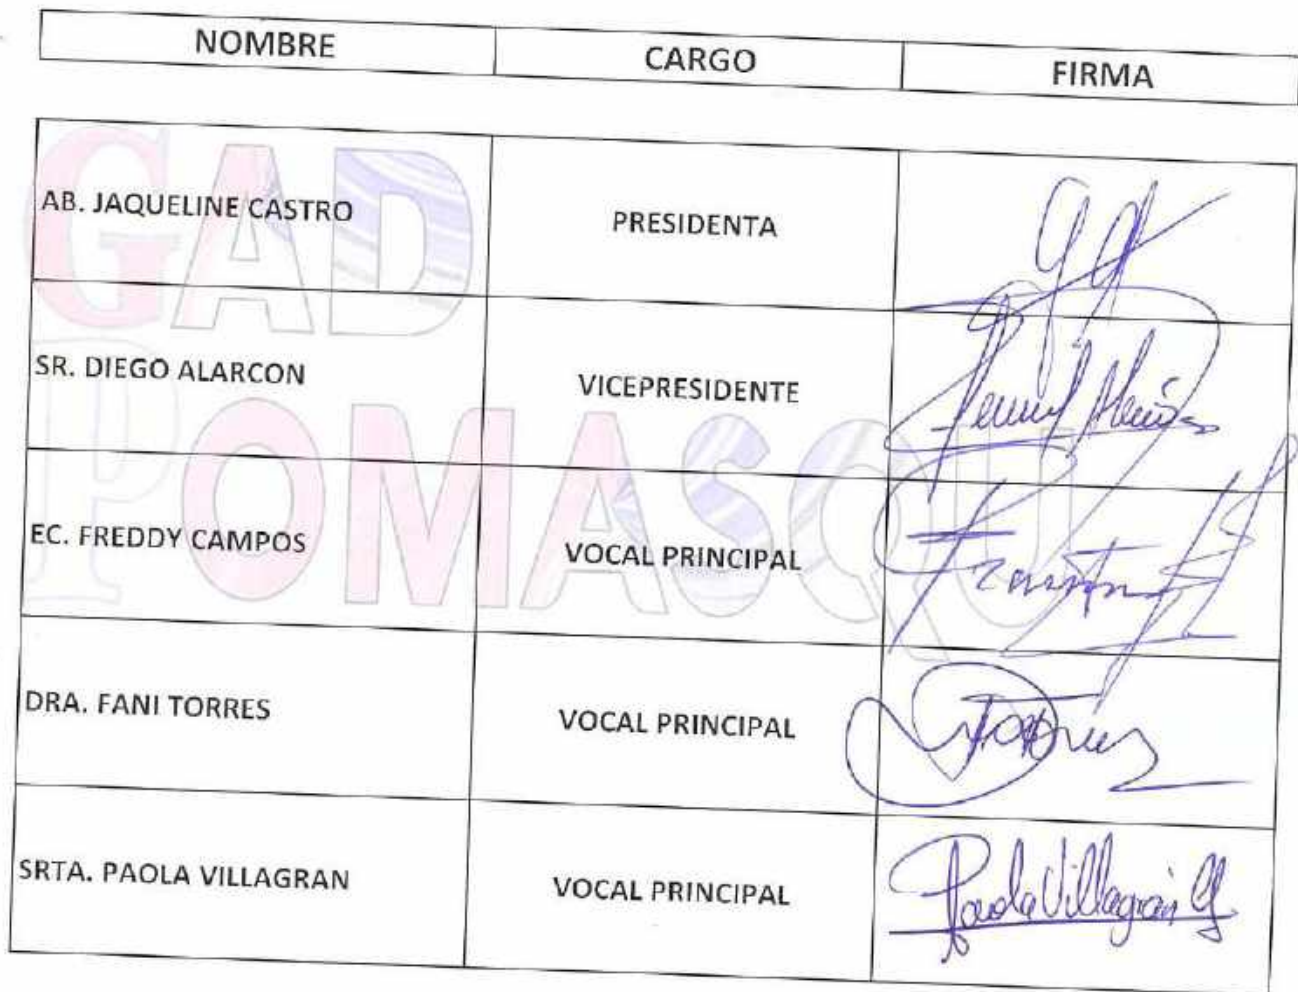 NOMBRE CARGO FIRMA
GAD
POMASQU
AB. JAQUELINE CASTRO PRESIDENTA
SR. DIEGO ALARCON VICEPRESIDENTE
EC. FREDDY CAMPOS VOCAL PRINCIPAL
DRA. FANI TORRES VOCAL PRINCIPAL
SRTA. PAOLA VILLAGRAN VOCAL PRINCIPAL Paola Villagran